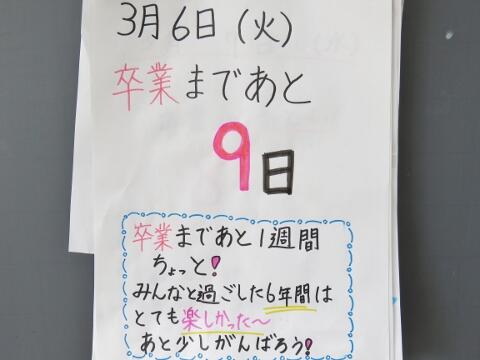 3月6日(火)
卒業まであと
9日
卒業まであと1週間
ちょっと!
みんなと過ごした6年間は
とても楽しかった〜
あと少しがんばろう!